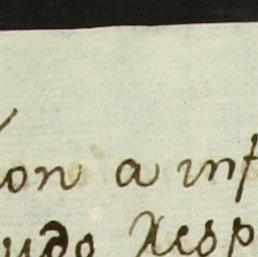 ion a inf
udo Resp